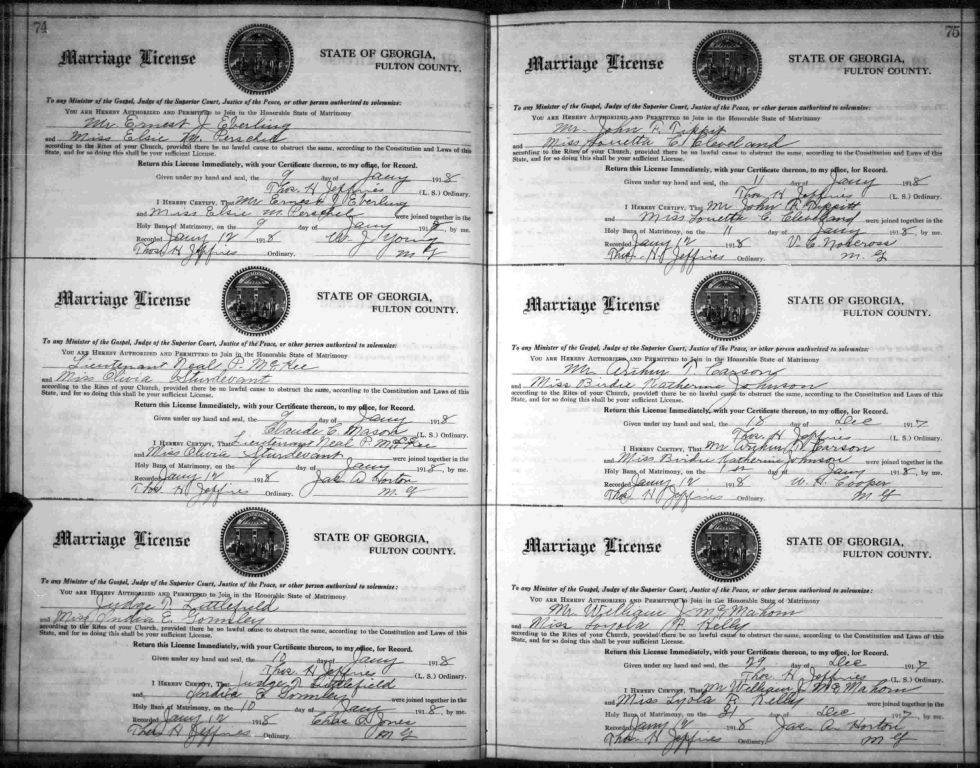 74
Marriage License
STATE OF GEORGIA,
FULTON COUNTY.
To any Minister of the Gospel, Judge of the Superior Court, Justice of the Peace, or other person authorized to solemnize:
YOU ARE HEREBY AUTHORIZED AND PERMITTED to Join in the Honorable State of Matrimony
Mr. Ernest J. Eberling
and Miss Elsie M. Perschel
according to the Rites of your Church, provided there be no lawful cause to obstruct the same, according to the Constitution and Laws of this
State, and for so doing this shall be your sufficient License.
Return this License Immediately, with your Certificate thereon, to my office, for Record.
Given under my hand and seal, the 9 day of Jany 1918
Thos. H. Jeffries (L. S.) Ordinary.
I HEREBY CERTIFY, That Mr Ernest J Eberling
and Miss Elsie M Perschel were joined together in the
Holy Bans of Matrimony, on the 9 day of Jany 1918, by me.
Recorded Jany 12 1918 W. J. Young
Thos. H. Jeffries Ordinary. M G
Marriage License
STATE OF GEORGIA,
FULTON COUNTY.
To any Minister of the Gospel, Judge of the Superior Court, Justice of the Peace, or other person authorized to solemnize:
YOU ARE HEREBY AUTHORIZED AND PERMITTED to Join in the Honorable State of Matrimony
Lieutenant Neal P. McKee
and Miss Olivia Sturdevant
according to the Rites of your Church, provided there be no lawful cause to obstruct the same, according to the Constitution and Laws of this
State, and for so doing this shall be your sufficient License.
Return this License Immediately, with your Certificate thereon, to my office, for Record.
Given under my hand and seal, the 9 day of Jany 1918
Claude C. Mason (L. S.) Ordinary.
I HEREBY CERTIFY, That Lieutenant Neal P. McKee
and Miss Olivia Sturdevant were joined together in the
Holy Bans of Matrimony, on the 9 day of Jany 1918, by me.
Recorded Jany 12 1918 Jas. W Horton
Thos. H. Jeffries Ordinary. M. G
Marriage License
STATE OF GEORGIA,
FULTON COUNTY.
To any Minister of the Gospel, Judge of the Superior Court, Justice of the Peace, or other person authorized to solemnize:
YOU ARE HEREBY AUTHORIZED AND PERMITTED to Join in the Honorable State of Matrimony
Judge Littlefield
and Miss India E. Gormley
according to the Rites of your Church, provided there be no lawful cause to obstruct the same, according to the Constitution and Laws of this
State, and for so doing this shall be your sufficient License.
Return this License Immediately, with your Certificate thereon, to my office, for Record.
Given under my hand and seal, the 10 day of Jany 1918
Thos. H. Jeffries (L. S.) Ordinary.
I HEREBY CERTIFY, That Judge Littlefield
and India E Gormley were joined together in the
Holy Bans of Matrimony, on the 10 day of Jany 1918, by me.
Recorded Jany 12 1918 Chas O Jones
Thos. H. Jeffries Ordinary. M G
75
Marriage License
STATE OF GEORGIA,
FULTON COUNTY.
To any Minister of the Gospel, Judge of the Superior Court, Justice of the Peace, or other person authorized to solemnize:
YOU ARE HEREBY AUTHORIZED AND PERMITTED to Join in the Honorable State of Matrimony
Mr. John R. Tippit
and Miss Lorretta C. Cleveland
according to the Rites of your Church, provided there be no lawful cause to obstruct the same, according to the Constitution and Laws of this
State, and for so doing this shall be your sufficient License.
Return this License Immediately, with your Certificate thereon, to my office, for Record.
Given under my hand and seal, the 11 day of Jany 1918
Thos. H. Jeffries (L. S.) Ordinary.
I HEREBY CERTIFY, That Mr John R. Tippitt
and Miss Louetta C. Cleveland were joined together in the
Holy Bans of Matrimony, on the 11 day of Jany 1918, by me.
Recorded Jany 12 1918 V. C. Norcross
Thos. H. Jeffries Ordinary. M. G
Marriage License
STATE OF GEORGIA,
FULTON COUNTY.
To any Minister of the Gospel, Judge of the Superior Court, Justice of the Peace, or other person authorized to solemnize:
YOU ARE HEREBY AUTHORIZED AND PERMITTED to Join in the Honorable State of Matrimony
Mr Carson
and Miss Birdie Katherine Johnson
according to the Rites of your Church, provided there be no lawful cause to obstruct the same, according to the Constitution and Laws of this
State, and for so doing this shall be your sufficient License.
Return this License Immediately, with your Certificate thereon, to my office, for Record.
Given under my hand and seal, the 18 day of Dec 1917
Thos. H. Jeffries (L. S.) Ordinary.
I HEREBY CERTIFY, That Mr Carson
and Miss Birdie Katherine Johnson were joined together in the
Holy Bans of Matrimony, on the 1st day of Jany 1918, by me.
Recorded Jany 12 1918 W. H. Cooper
Thos. H. Jeffries Ordinary. M G
Marriage License
STATE OF GEORGIA,
FULTON COUNTY.
To any Minister of the Gospel, Judge of the Superior Court, Justice of the Peace, or other person authorized to solemnize:
YOU ARE HEREBY AUTHORIZED AND PERMITTED to Join in the Honorable State of Matrimony
Mr William J. McMahorn
and Miss Loyola P. Kelly
according to the Rites of your Church, provided there be no lawful cause to obstruct the same, according to the Constitution and Laws of this
State, and for so doing this shall be your sufficient License.
Return this License Immediately, with your Certificate thereon, to my office, for Record.
Given under my hand and seal, the 29 day of Dec 1917
Thos. H. Jeffries (L. S.) Ordinary.
I HEREBY CERTIFY, That Mr William J. McMahorn
and Miss Lyola P. Kelly were joined together in the
Holy Bans of Matrimony, on the 31 day of Dec 1917, by me.
Recorded Jany 12 1918 Jas. Horton
Thos. H. Jeffries Ordinary. M G